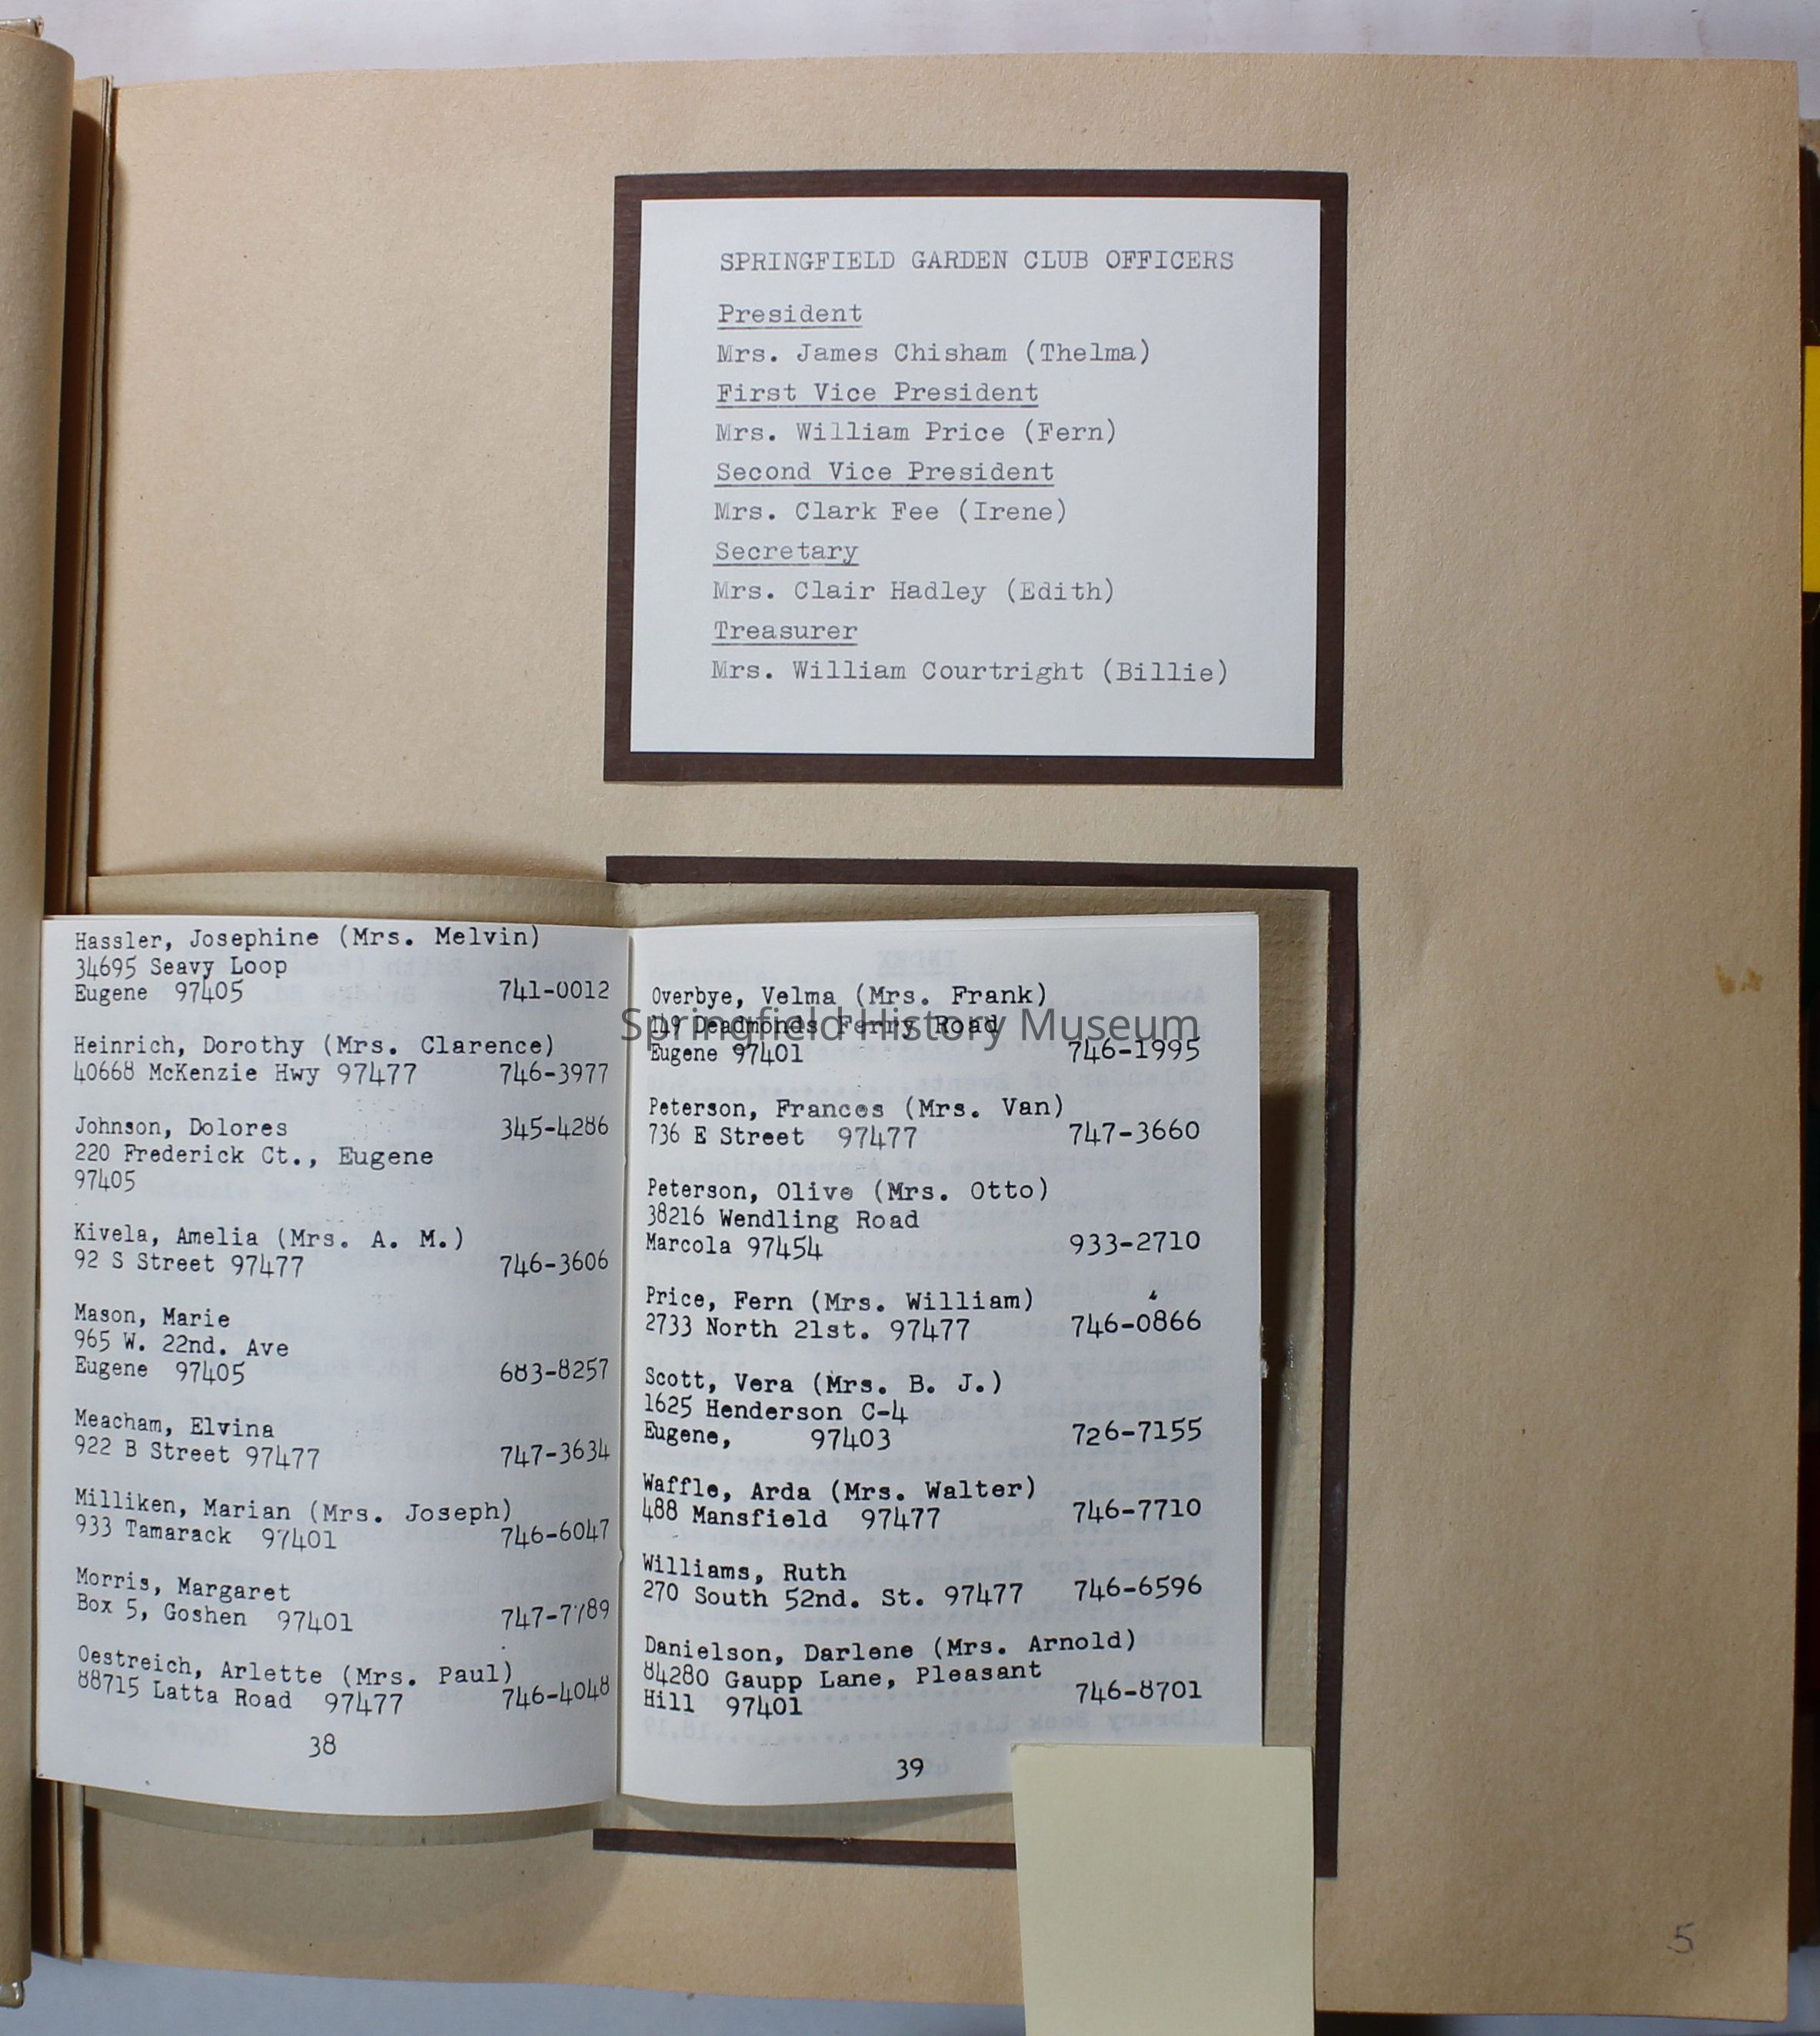 SPRINGFIELD GARDEN CLUB OFFICERS
President
Mrs. James Chisham (Thelma)
First Vice President
Mrs. William Price (Fern)
Second Vice President
Mrs. Clark Fee (Irene)
Secretary
Mrs. Clair Hadley (Edith)
Treasurer
Mrs. William Courtright (Billie)
Hassler, Josephine (Mrs. Melvin)
34695 Seavy Loop
Eugene 97405 741-0012
Heinrich, Dorothy (Mrs. Clarence)
40668 McKenzie Hwy 97477 746-3977
Johnson, Dolores 345-4286
220 Frederick Ct., Eugene
97405
Kivela, Amelia (Mrs. A. M.)
92 S Street 97477 746-3606
Mason, Marie
965 W. 22nd. Ave
Eugene 97405 683-8257
Meacham, Elvina
922 B Street 97477 747-3634
Milliken, Marian (Mrs. Joseph)
933 Tamarack 97401 746-6047
Morris, Margaret
Box 5, Goshen 97401 747-7789
Oestreich, Arlette (Mrs. Paul)
88715 Latta Road 97477 746-4048
38
Overbye, Velma (Mrs. Frank)
Deadmonds Ferry Road
Eugene 97401 746-1995
Peterson, Frances (Mrs. Van)
736 E Street 97477 747-3660
Peterson, Olive (Mrs. Otto)
38216 Wendling Road
Marcola 97454 933-2710
Price, Fern (Mrs. William)
2733 North 21st. 97477 746-0866
Scott, Vera (Mrs. B. J.)
1625 Henderson C-4
Eugene, 97403 726-7155
Waffle, Arda (Mrs. Walter)
488 Mansfield 97477 746-7710
Williams, Ruth
270 South 52nd. St. 97477 746-6596
Danielson, Darlene (Mrs. Arnold)
84280 Gaupp Lane, Pleasant
Hill 97401 746-8701
39
Springfield History Museum
5